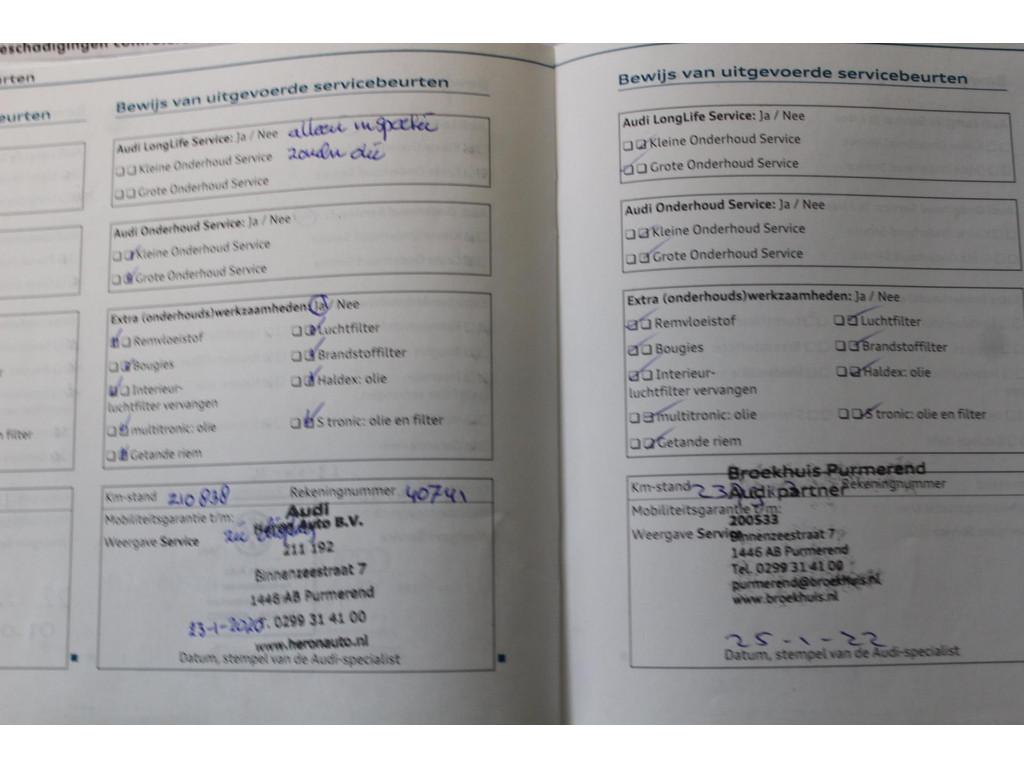 eschadigingen
urten
eurten
filter
Bewijs van uitgevoerde servicebeurten
Audi LongLife Service: Ja / Nee alleen
Kleine Onderhoud Service
Grote Onderhoud Service
Audi Onderhoud Service: Ja / Nee
Kleine Onderhoud Service
Grote Onderhoud Service
Extra (onderhouds)werkzaamheden: Ja / Nee
Remvloeistof Luchtfilter
Bougies Brandstoffilter
Interieur- Haldex: olie
luchtfilter vervangen
multitronic: olie S tronic: olie en filter
Getande riem
Km-stand 210838 Rekeningnummer 40741
Audi
Mobiliteitsgarantie t/m: Auto B.V.
Weergave Service
211 192
Binnenzeestraat 7
1446 AB Purmerend
23-1-2020 . 0299 31 41 00
www.heronauto.nl
Datum, stempel van de Audi-specialist
Bewijs van uitgevoerde servicebeurten
Audi LongLife Service: Ja / Nee
Kleine Onderhoud Service
Grote Onderhoud Service
Audi Onderhoud Service: Ja / Nee
Kleine Onderhoud Service
Grote Onderhoud Service
Extra (onderhouds)werkzaamheden: Ja / Nee
Remvloeistof Luchtfilter
Bougies Brandstoffilter
Interieur- Haldex: olie
luchtfilter vervangen
multitronic: olie S tronic: olie en filter
Getande riem
Broekhuis Purmerend
Km-stand Audi partner Rekeningnummer
Mobiliteitsgarantie t/m:
200533
Weergave Service Binnenzeestraat 7
1446 AB Purmerend
Tel. 0299 31 41 00
purmerend@broekhuis.nl
www.broekhuis.nl
25-1-22
Datum, stempel van de Audi-specialist